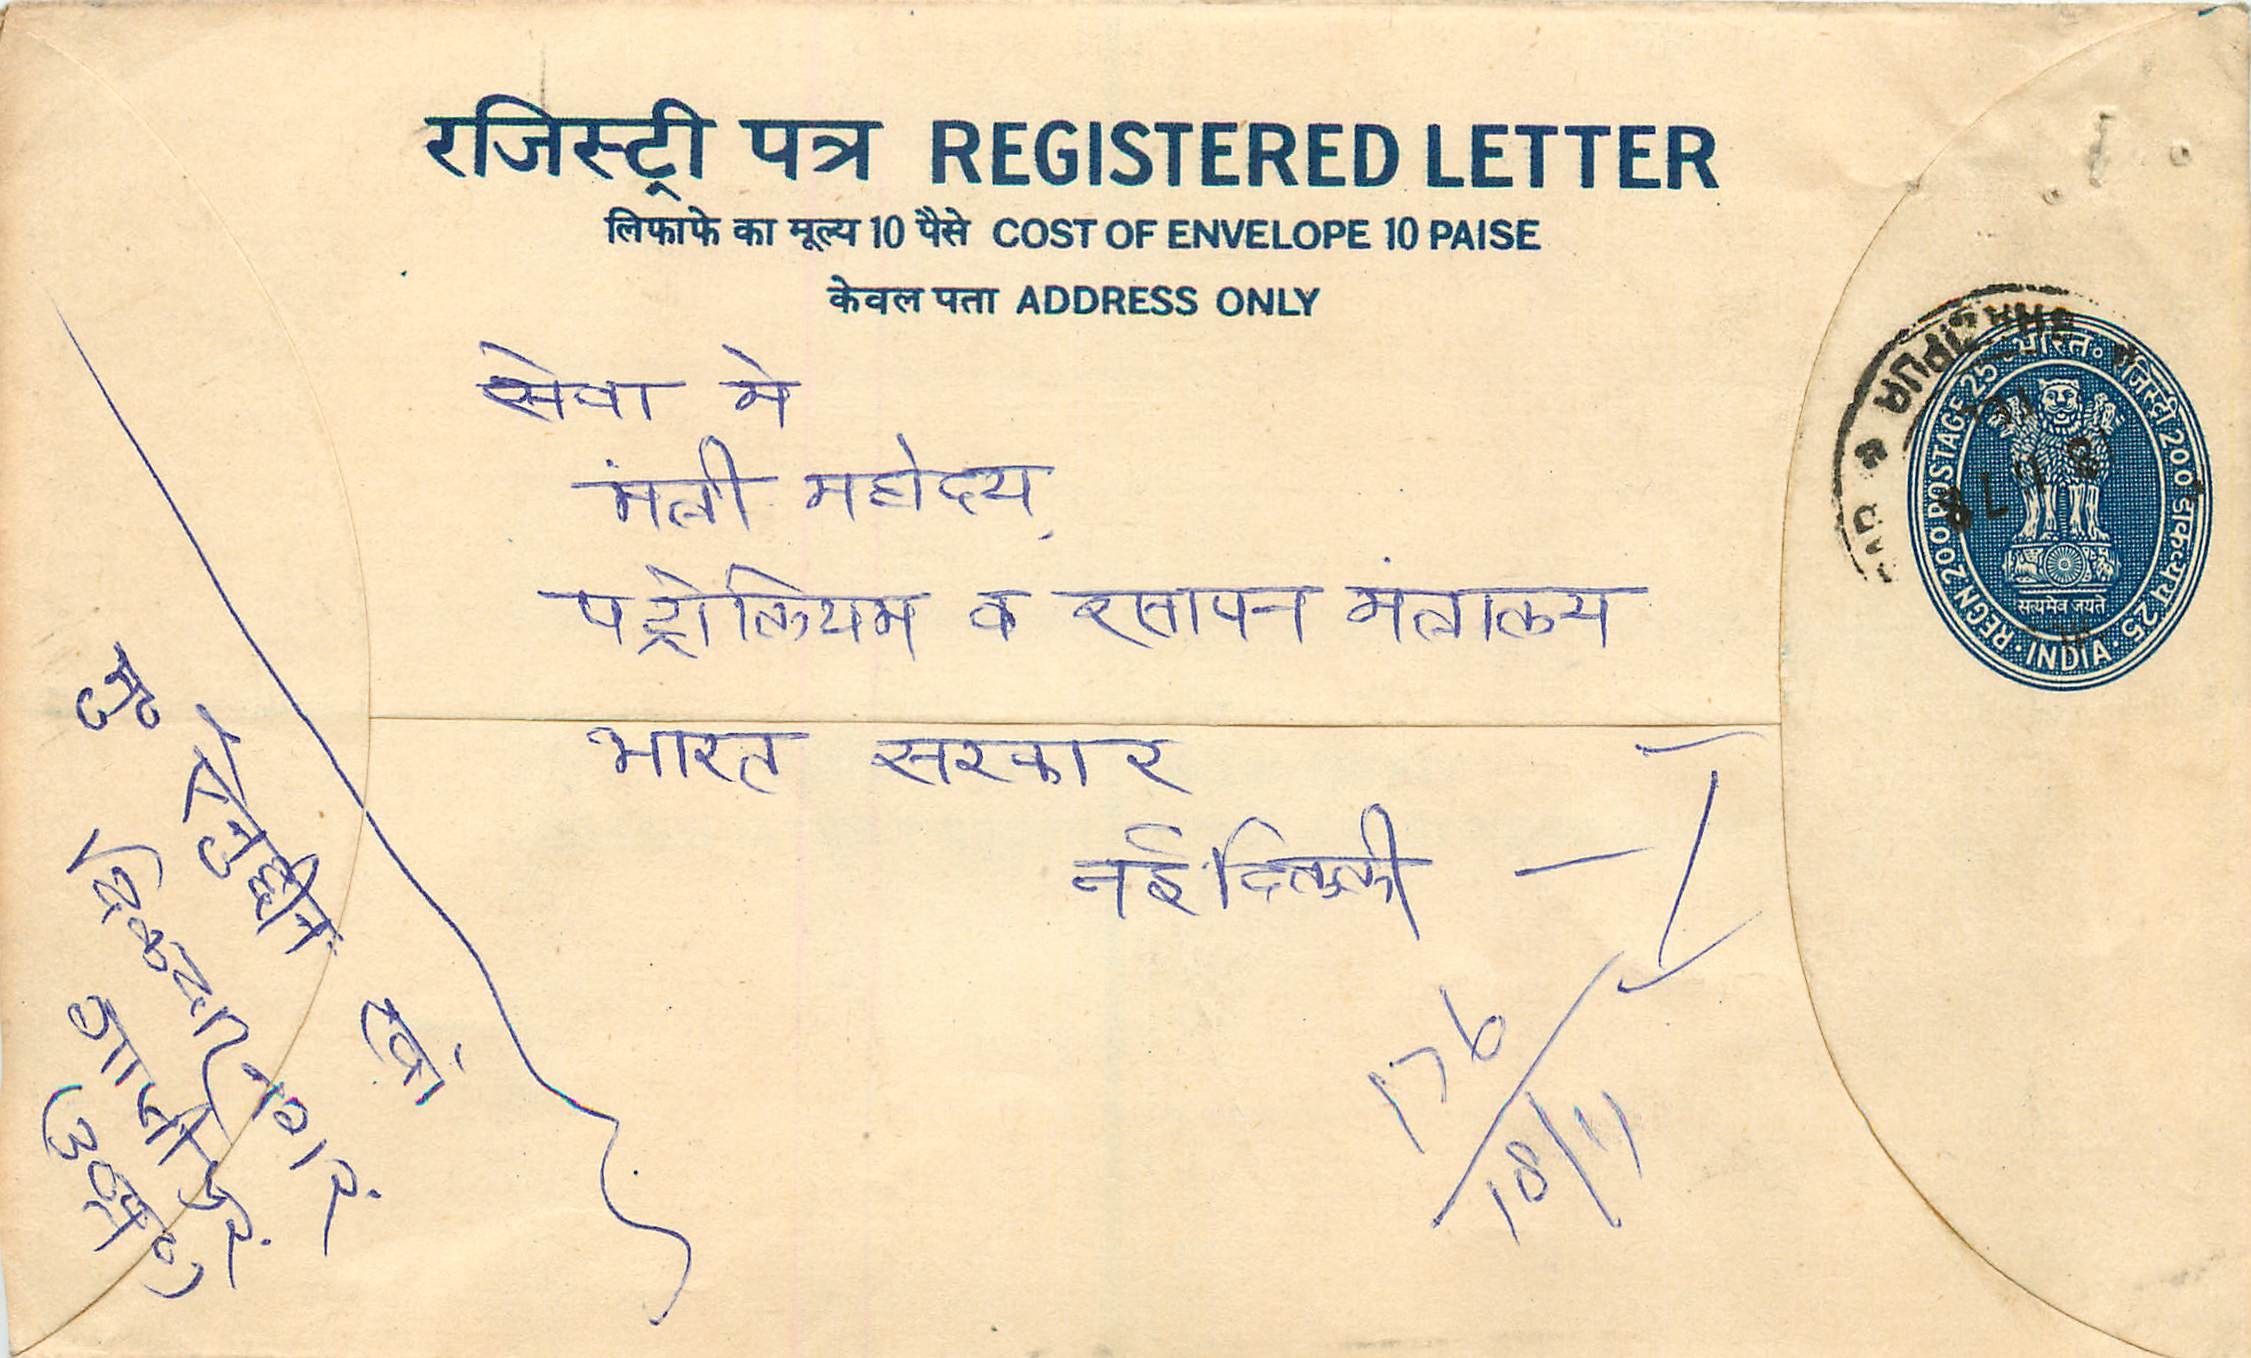 रजिस्ट्री पत्र REGISTERED LETTER
लिफाफे का मूल्य 10 पैसे COST OF ENVELOPE 10 PAISE
केवल पता ADDRESS ONLY
भारत • रजिस्ट्री 200 डाकव्यय 25 • INDIA • REGN 200 POSTAGE 25
सत्यमेव जयते
सेवा मे
मंत्री महोदय
पेट्रोलियम व रसायन मंत्रालय
भारत सरकार
नई दिल्ली - 1
176
18/11
नगर
गाजीपुर
(उ०प्र०)